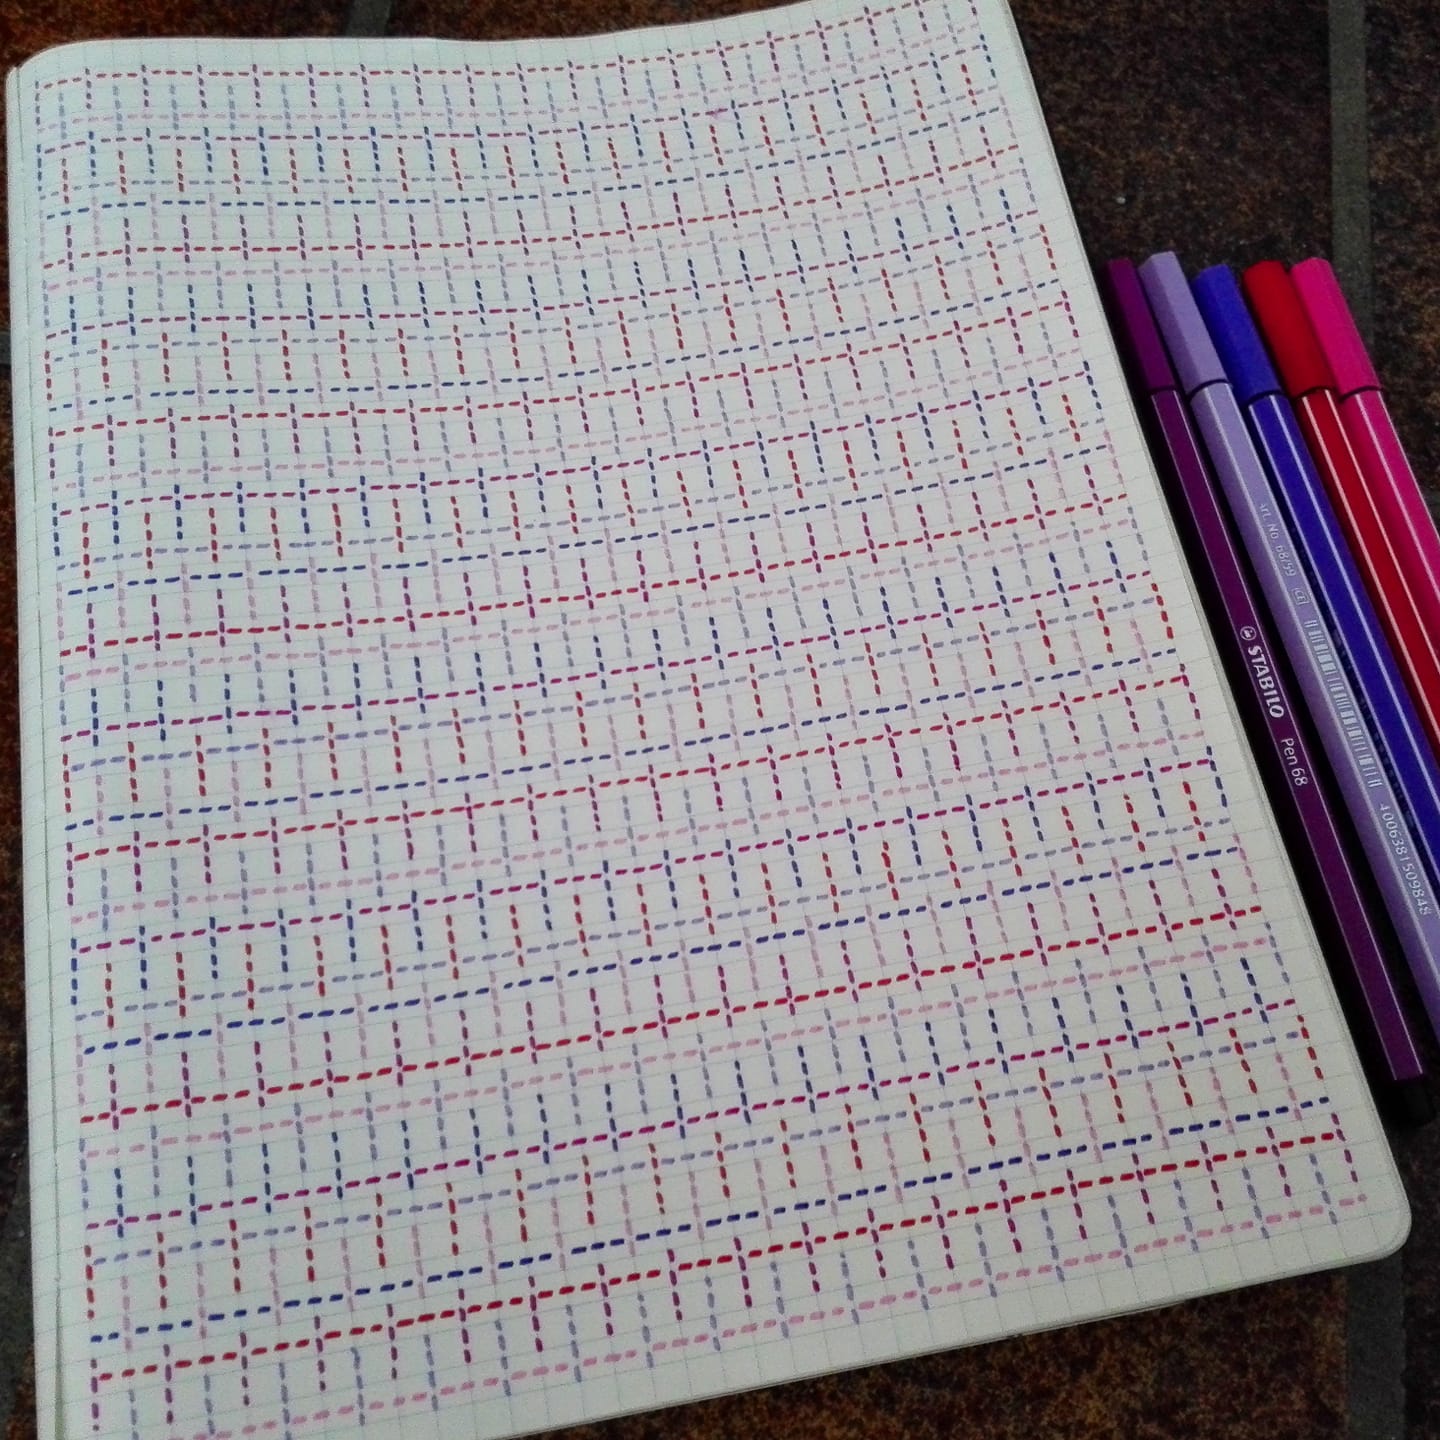 STABILO Pen 68
Art. No. 68/59 CE
4006381509848